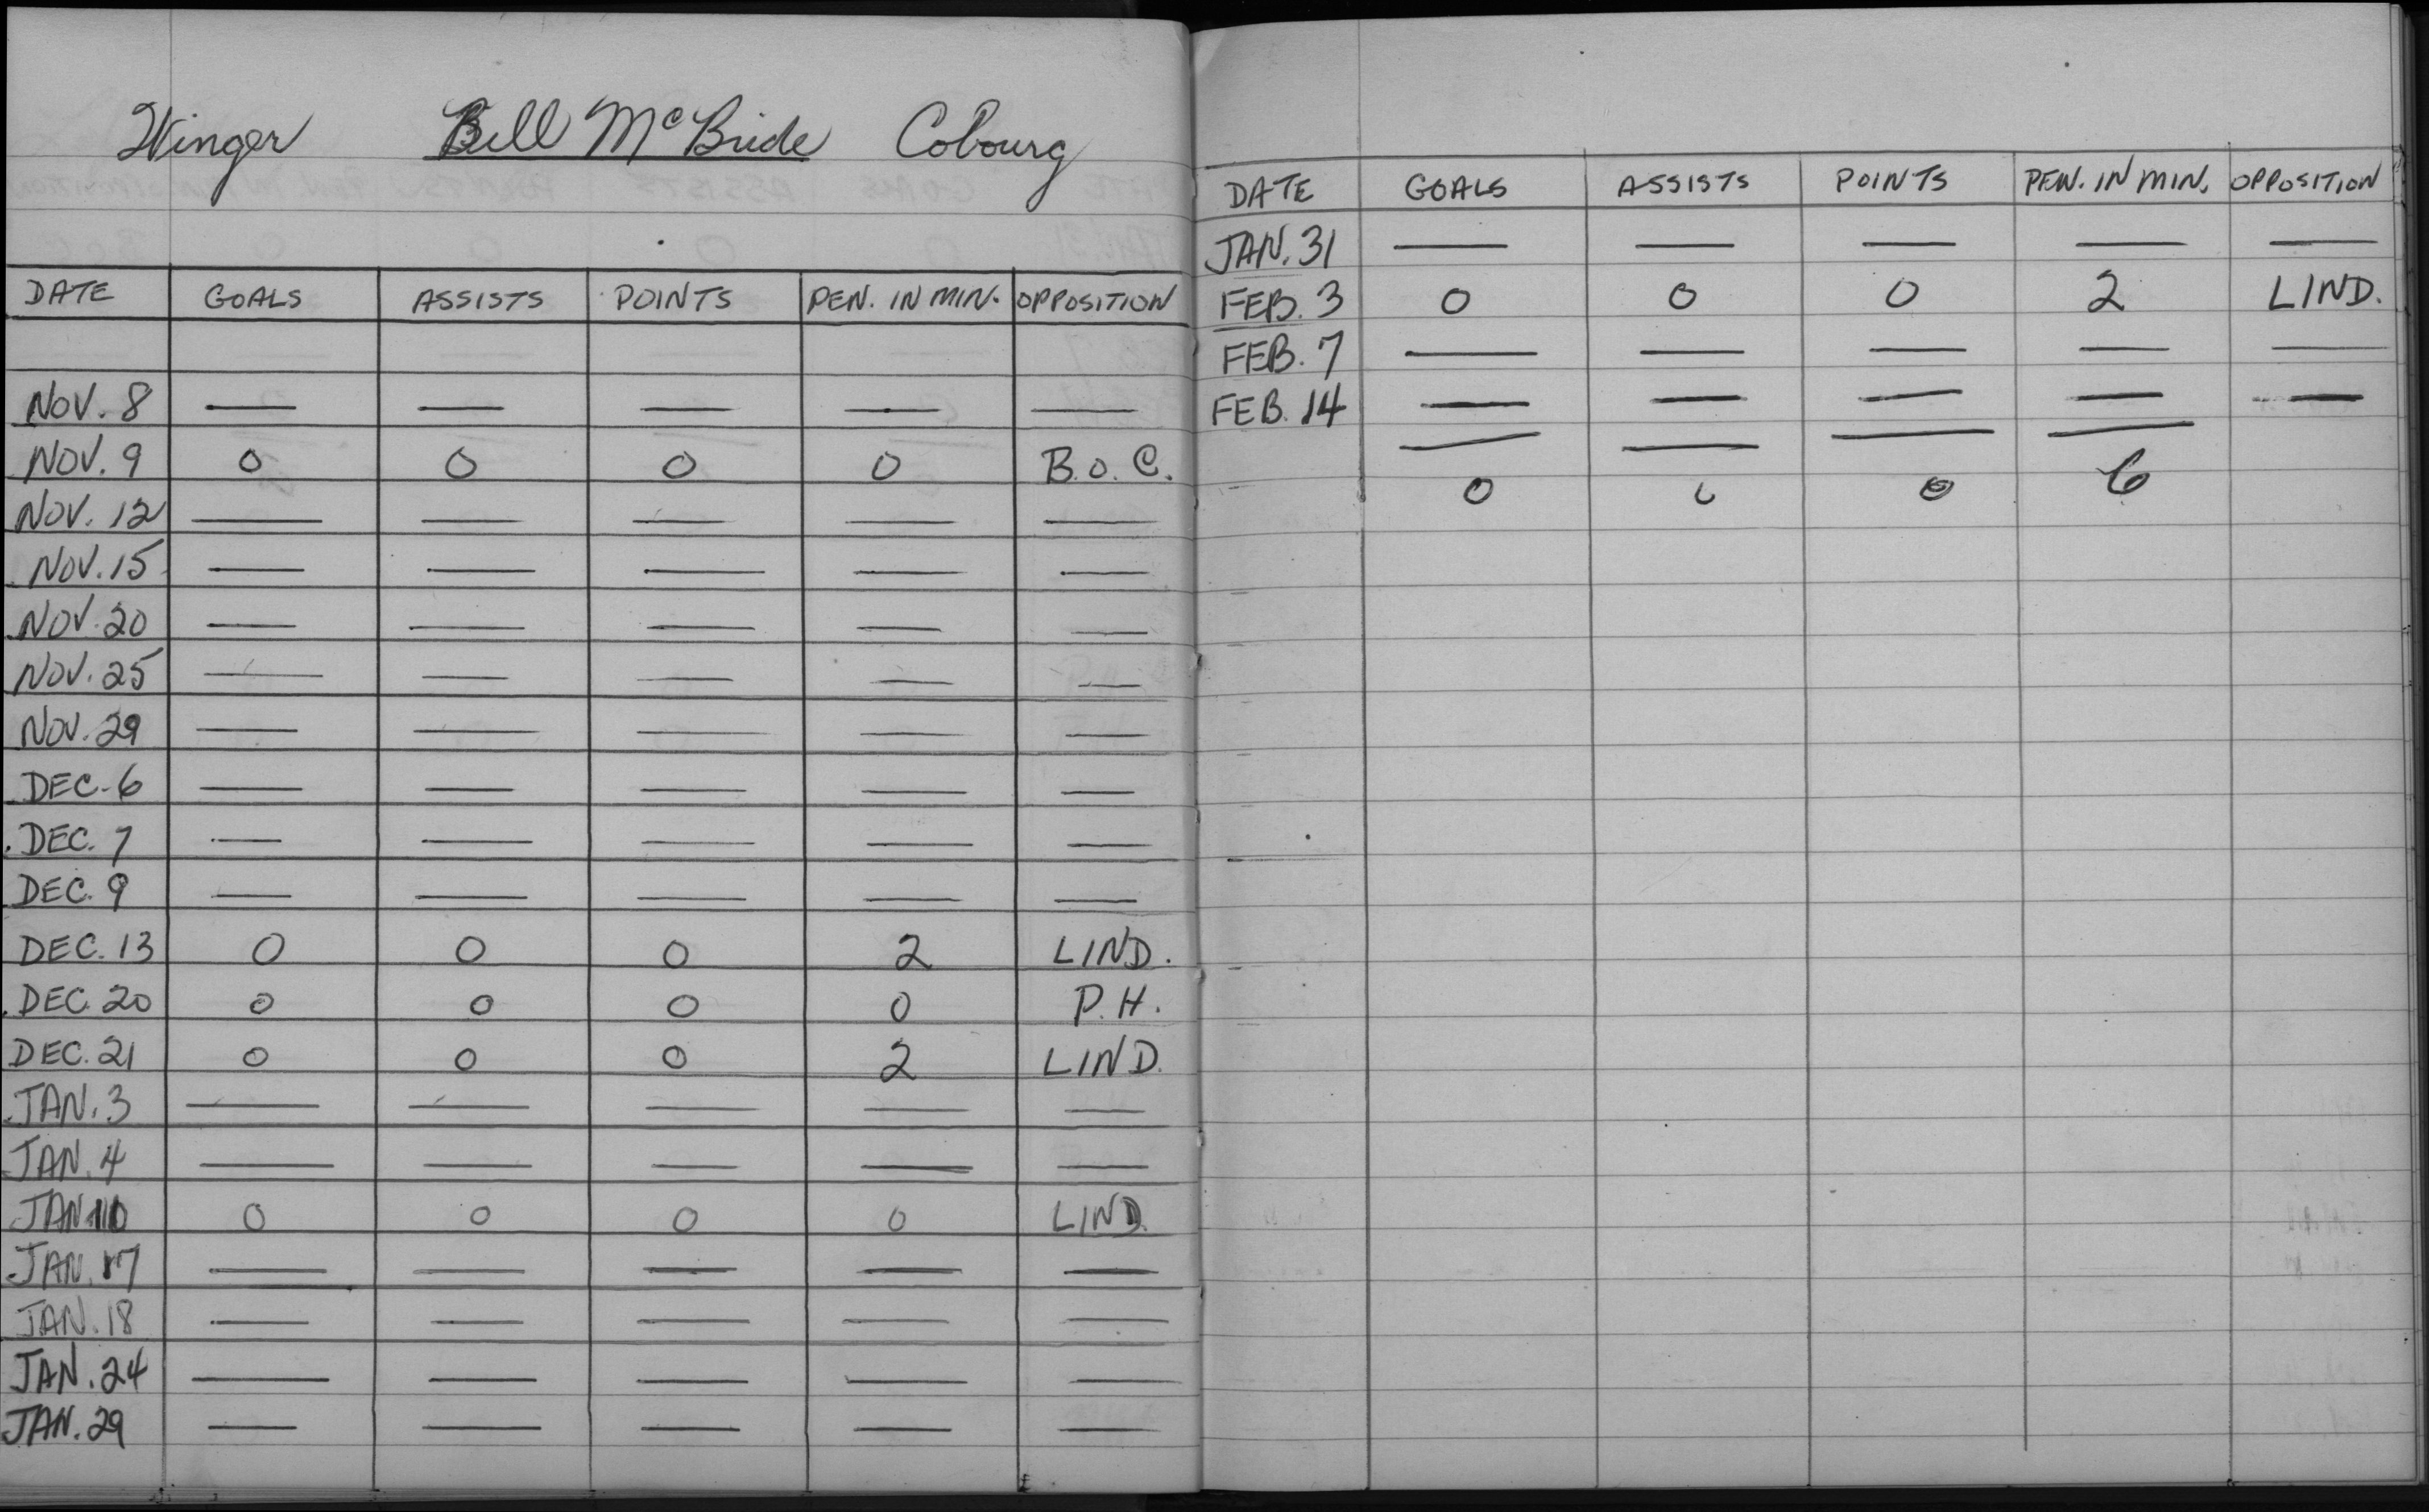 Winger Bill McBride Cobourg
DATE GOALS ASSISTS POINTS PEN. IN MIN. OPPOSITION
NOV. 8 — — — — —
NOV. 9 0 0 0 0 B.O.C.
NOV. 12 — — — — —
NOV. 15 — — — — —
NOV. 20 — — — — —
NOV. 25 — — — — —
NOV. 29 — — — — —
DEC. 6 — — — — —
DEC. 7 — — — — —
DEC. 9 — — — — —
DEC. 13 0 0 0 2 LIND.
DEC. 20 0 0 0 0 P.H.
DEC. 21 0 0 0 2 LIND.
JAN. 3 — — — — —
JAN. 4 — — — — —
JAN. 10 0 0 0 0 LIND.
JAN. 17 — — — — —
JAN. 18 — — — — —
JAN. 24 — — — — —
JAN. 29 — — — — —
DATE GOALS ASSISTS POINTS PEN. IN MIN. OPPOSITION
JAN. 31 — — — — —
FEB. 3 0 0 0 2 LIND.
FEB. 7 — — — — —
FEB. 14 — — — — —
0 0 0 6